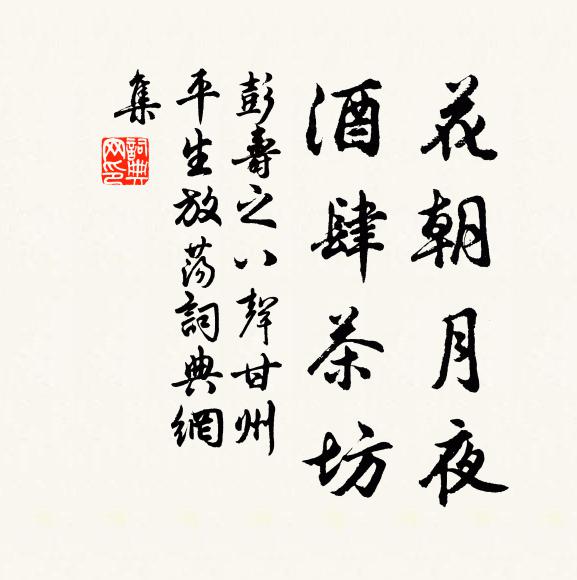 花朝月夜
酒肆茶坊
彭壽之八聲甘州
平生放蕩詞典網
集
詞典網印